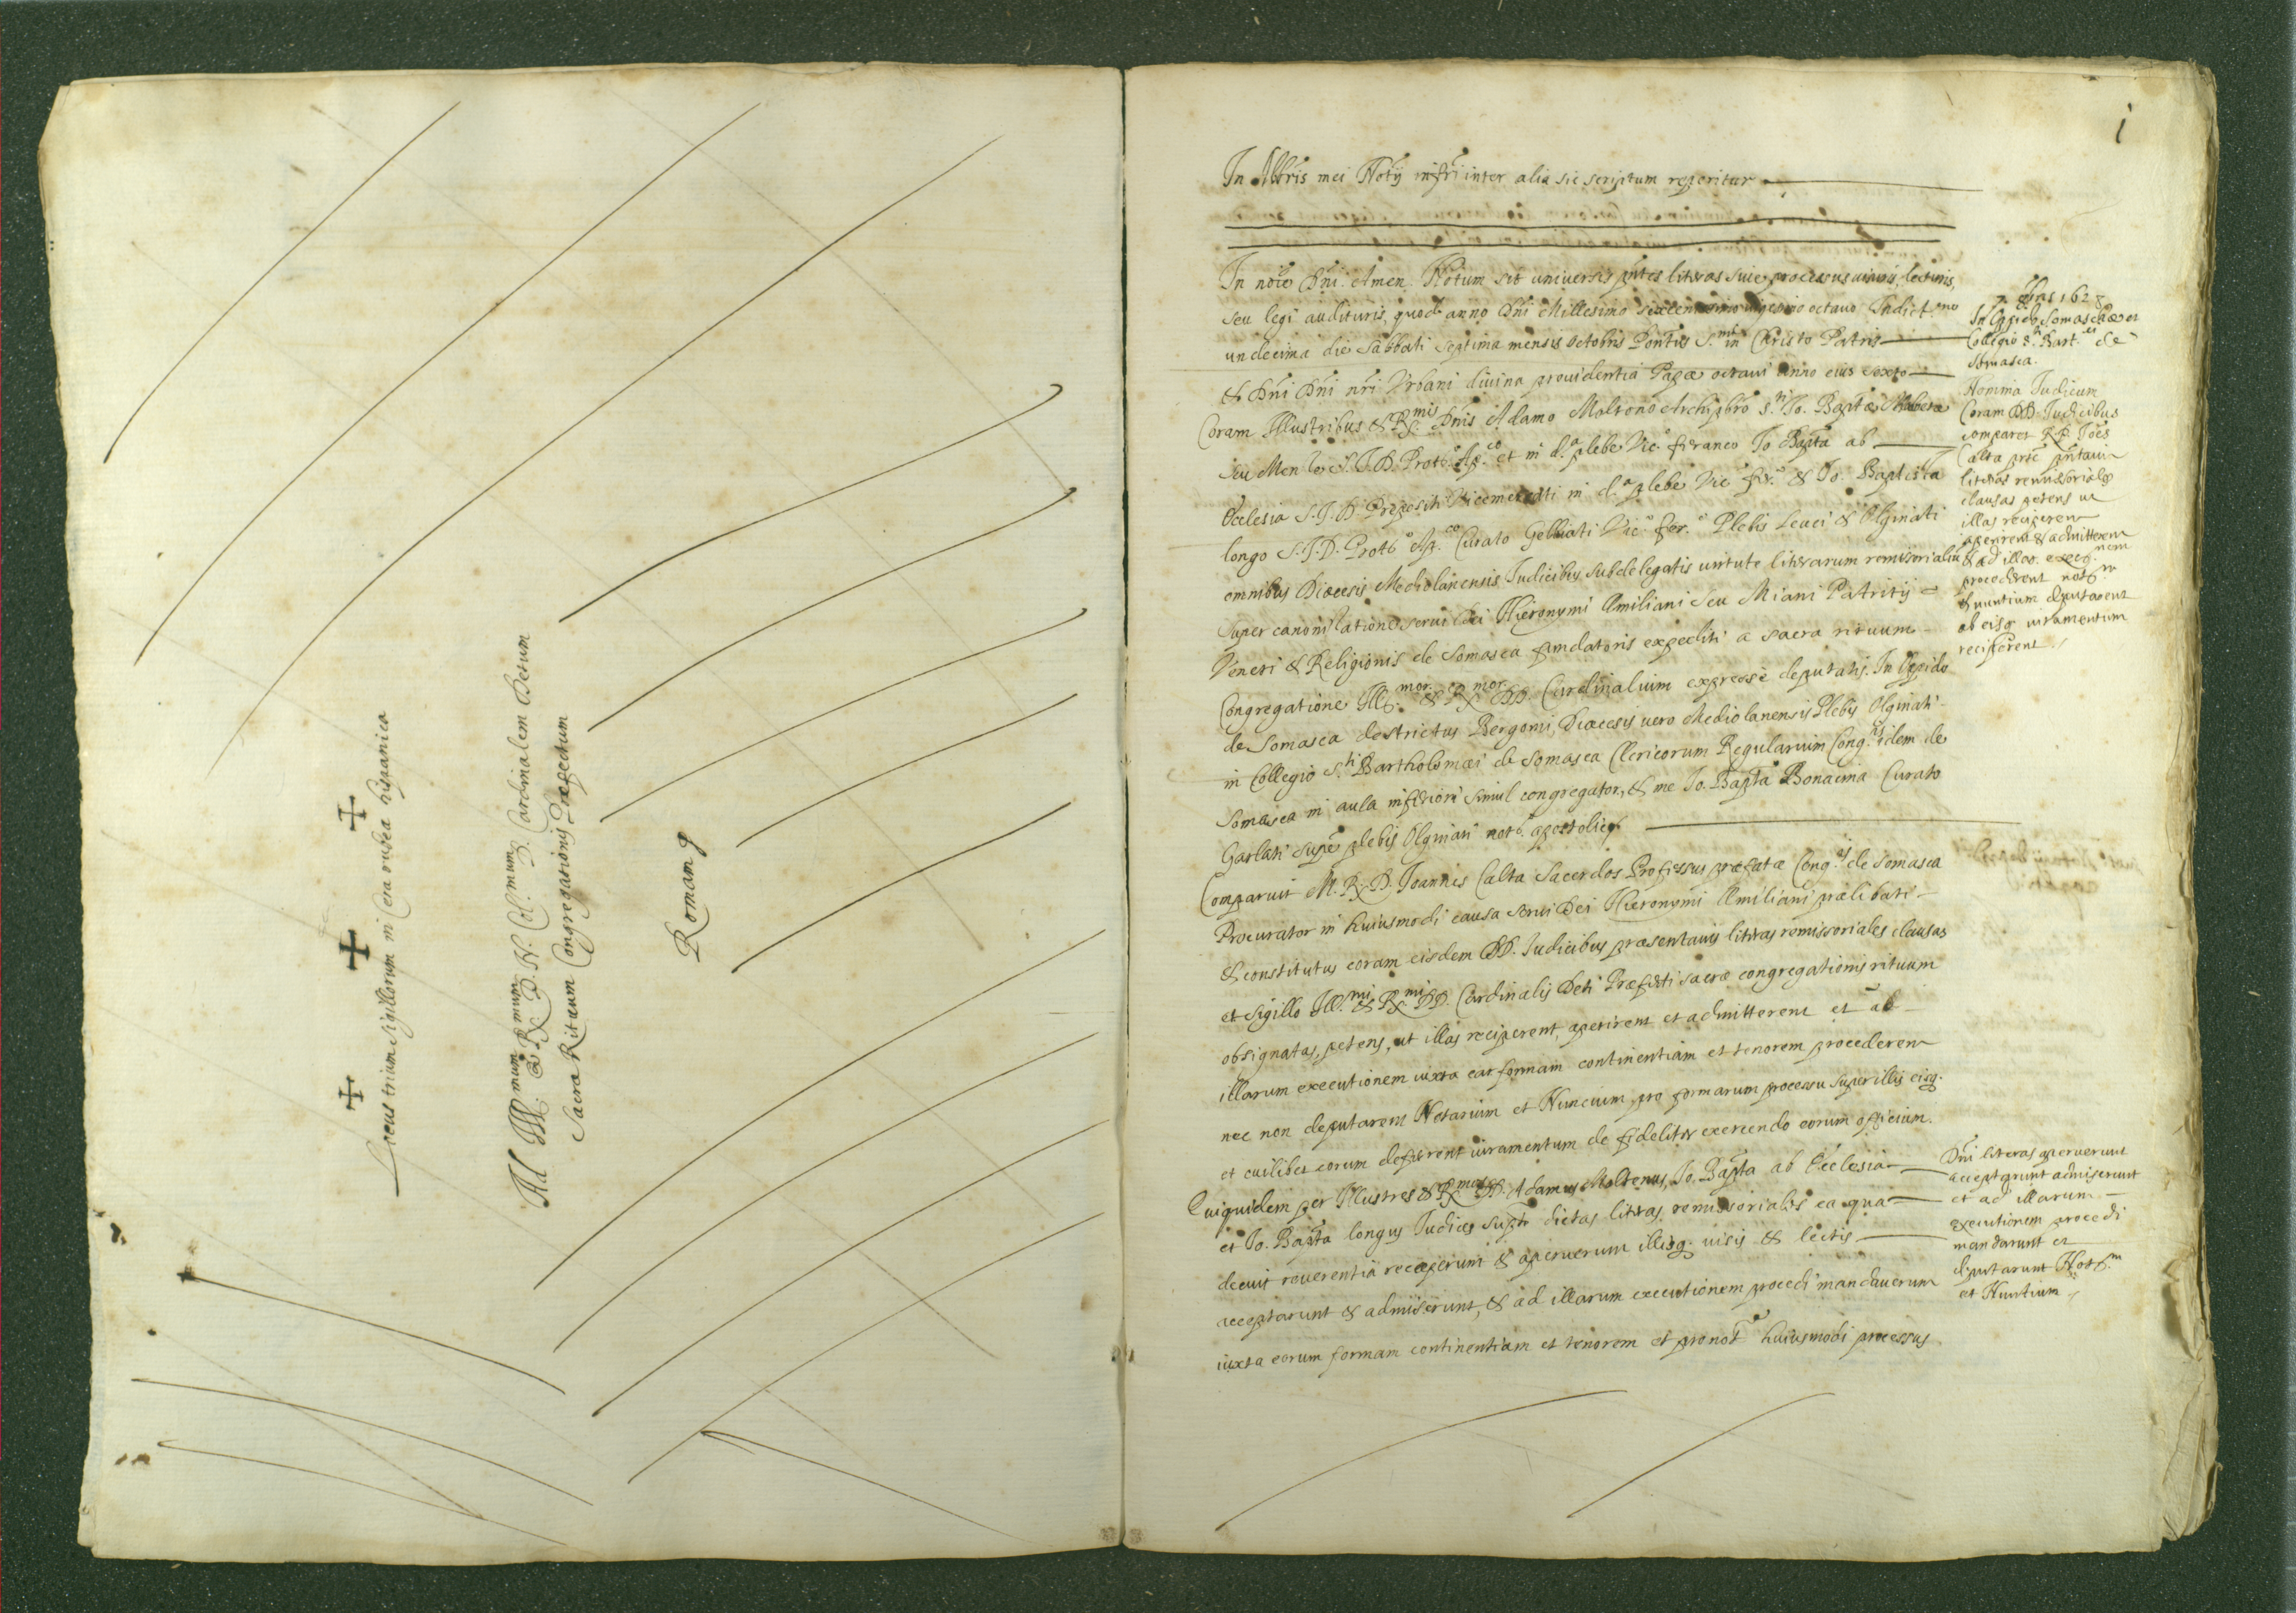 Locus trium sigillorum in Cera rubea hispanica
Ad Ill.mum & R.mum D. N. Col.mum D. Cardinalem Detum
Sacra Rituum Congregationis Præfectum
Romam
1
In Abbris mei Notij infri inter alia sic scriptum reperitur
In noie Dni. Amen. Notum sit universis pntes litras suie processus lecturis,
seu legi audituris, quod anno Dni Millesimo sexcentesimo vigesimo octavo Indict.
undecima die Sabbati septima mensis octobris Pontus S.mi in Christo Patris
& Dni Dni nri Urbani divina providentia Papæ octavi Anno eius sexto
Coram Illustribus & R.mis Dnis Adamo Moltono Archipbro S.ti Jo. Baptæ
seu Men S.J.D. Proto. Ap.co et in d.a plebe Vic.o foraneo Jo Bapta ab
Ecclesia S.J.D. Preposito in d.a plebe Vic. for. & Jo. Baptista
longo S.J.D. Proto.o Ap.co Curato Galbiati Vic.o for.o Plebis Leuci & Olginati
omnibus Diœcesis Mediolanensis Judicibus subdelegatis virtute litrarum remissorialiu
super canonizatione servi Dei Hieronymi Æmiliani seu Miani Patritij
Veneti & Religionis de Somasca fundatoris expediti a sacra rituum
Congregatione Ill.mor. & R.mor. DD. Cardinalium expresse deputatis. In Oppido
de Somasca destrictus Bergomi, Diœcesis vero Mediolanensis Plebis Olginati
in Collegio S.ti Bartholomæi de Somasca Clericorum Regularium Cong.is idem de
Somasca in aula inferiori simul congregator, & me Jo. Bapta Bonacina Curato
Garlati supe plebis Olginati noto. apostolico
Comparuit M. R. D. Joannes Calta Sacerdos Professus præfatæ Cong.is de Somasca
Procurator in huiusmodi causa servi Dei Hieronymi Æmiliani prælibati
& constitutus coram eisdem DD. Judicibus præsentavit litras remissoriales clausas
et sigillo Ill.mi & R.mi DD. Cardinalis Deti Præfecti sacræ congregationis rituum
obsignatas, petens, ut illas reciperent, aperirent et admitterent et ad
illarum executionem iuxta ear formam continentiam et tenorem procederent
nec non deputarent Notarium et Nuncium pro formarum processu super illis eisq.
et cuilibet eorum deferrent iuramentum de fideliter exercendo eorum officium.
Quiquidem per Illustres & R. DD. Adamus Moltenus, Jo. Bapta ab Ecclesia
et Jo. Bapta longus Judices supti dictas litras remissorialis ea qua
decuit reverentia receperunt & aperuerunt illisq. visis & lectis
acceptarunt & admiserunt, & ad illarum executionem procedi mandaverunt
iuxta eorum formam continentiam et tenorem et pro not.o huiusmodi processus
7. 8bris 1628
In Oppido Somaschæ et
Collegio S. Bart.ei de
Somasca.
Nomina Judicum
Coram DD. Judicibus
comparet R.P. Joes
Calta
literas remissoriales
clausas petens ut
illas reciperent
aperirent & admitterent
& ad illar. exec.nem
procederent
& nuntium deputarent
ab eisq iuramentum
reciperent
Dni literas aperuerunt
acceptarunt admiserunt
et ad illarum
executionem procedi
mandarunt et
deputarunt Not.m
et Nuntium